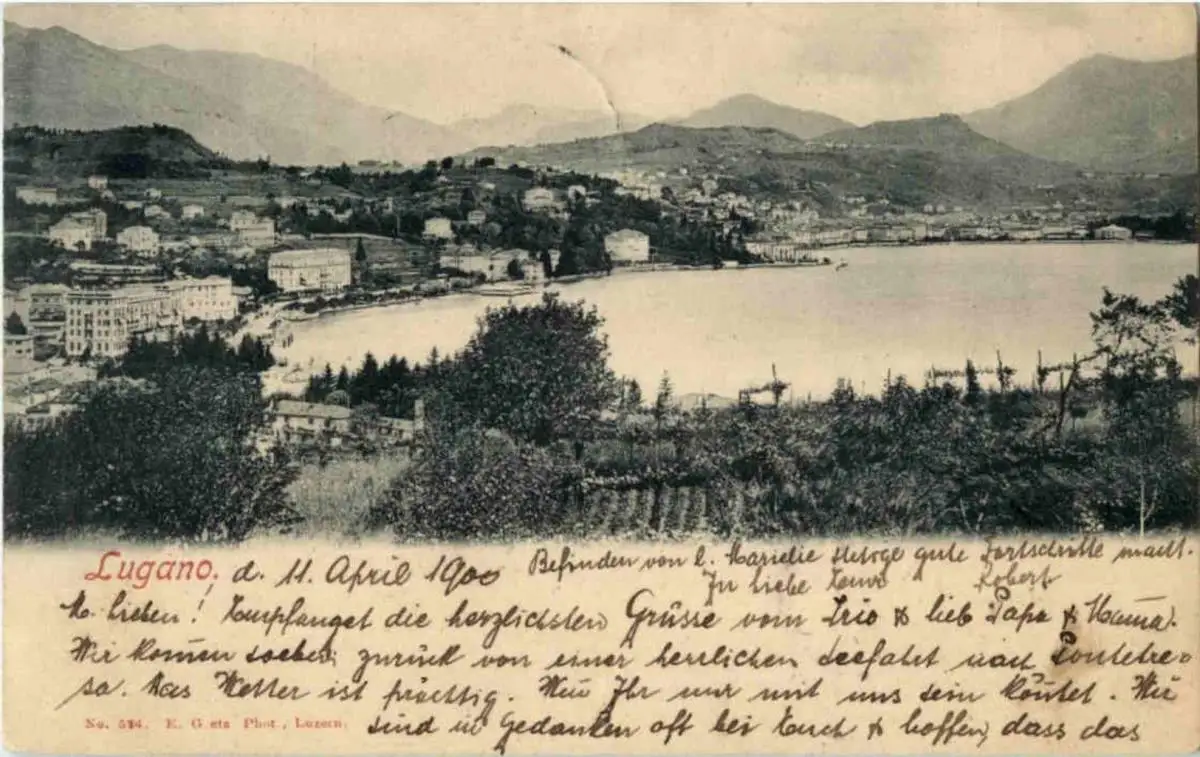 Lugano, d. 11. April 1900
M. Lieben! Empfanget die herzlichsten Grüsse vom Trio & lieb Papa & Mama.
Wir kommen soeben zurück von einer herrlichen Seefahrt nach Ponte Tre-
sa. Das Wetter ist prächtig. Wenn Ihr nur mit uns sein könntet. Wir
sind in Gedanken oft bei Euch & hoffen, dass das
Befinden von l. gute Fortschritte macht.
In Liebe Euer Robert
No. 524. E. Goetz Phot., Luzern.